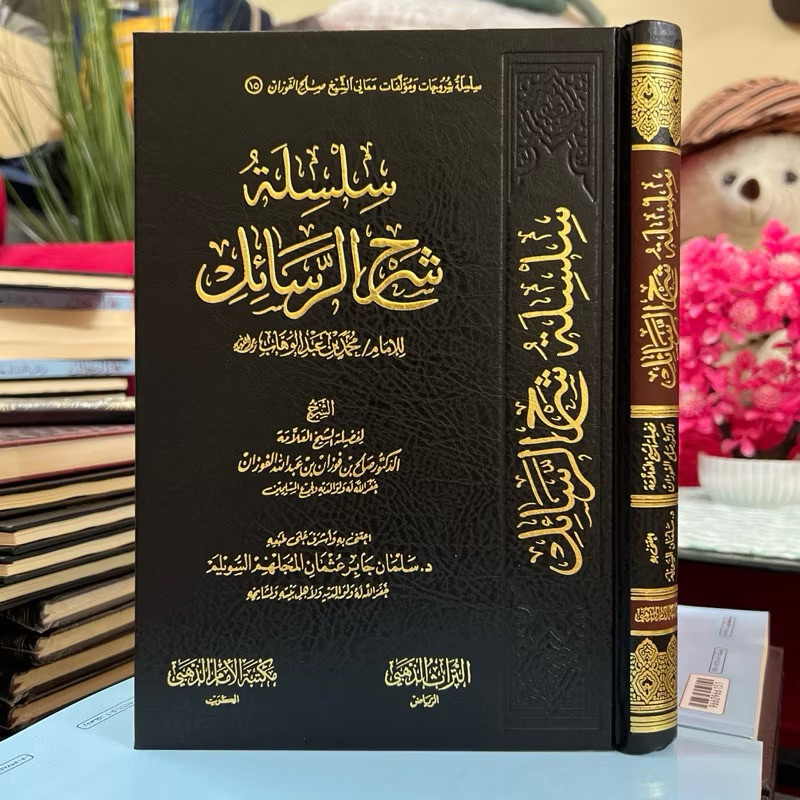 سلسلة شروحات ومؤلفات معالي الشيخ صالح الفوزان (١٥)
سِلْسِلَةُ
شَرْحِ الرَّسَائِلِ
للإمام / محمد بن عبد الوهاب رحمه الله
الشرح
لفضيلة الشيخ العلامة
الدكتور صالح بن فوزان بن عبد الله الفوزان
غفر الله له ولوالديه ولجميع المسلمين
اعتنى به وأشرف على طبعه
د. سلمان جابر عثمان المجلهم السويلم
غفر الله له ولوالديه ولأهل بيته ولمشايخه
التراث الذهبي
الرياض
مكتبة الإمام الذهبي
الكويت
سِلْسِلَةُ شَرْحِ الرَّسَائِلِ
سِلْسِلَةُ شَرْحِ الرَّسَائِلِ
فضيلة الشيخ العلامة
الدكتور صالح الفوزان
اعتنى به
د. سلمان السويلم